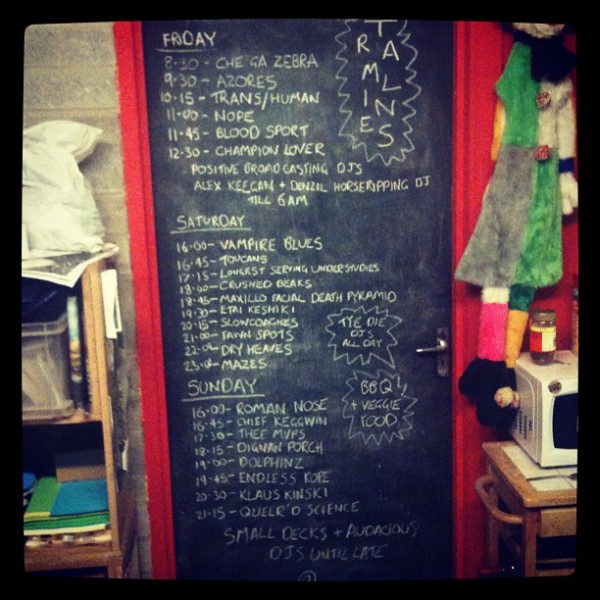 TRAMLINES
FRIDAY
8.30 - CHE GA ZEBRA
9.30 - AZORES
10.15 - TRANS/HUMAN
11.00 - NOPE
11.45 - BLOOD SPORT
12.30 - CHAMPION LOVER
POSITIVE BROADCASTING DJS
ALEX KEEGAN + DENZIL HORSERIPPING DJ
TILL 6AM
SATURDAY
16.00 - VAMPIRE BLUES
16.45 - TOUCANS
17.15 - LONGEST SERVING UNDERSTUDIES
18.00 - CRUSHED BEAKS
18.45 - MAXILLO FACIAL DEATH PYRAMID
19.30 - ETAI KESHIKI
20.15 - SLOWCOACHES
21.00 - FAWN SPOTS
22.00 - DRY HEAVES
23.00 - MAZES
TYE DIE
DJS
ALL DAY
SUNDAY
16.00 - ROMAN NOSE
16.45 - CHIEF KEGGWIN
17.30 - THEE MVPS
18.15 - DIGNAN PORCH
19.00 - DOLPHINZ
19.45 - ENDLESS ROPE
20.30 - KLAUS KINSKI
21.15 - QUEER'D SCIENCE
BBQ
+ VEGGIE
FOOD
SMALL DECKS + AUDACIOUS
DJS UNTIL LATE